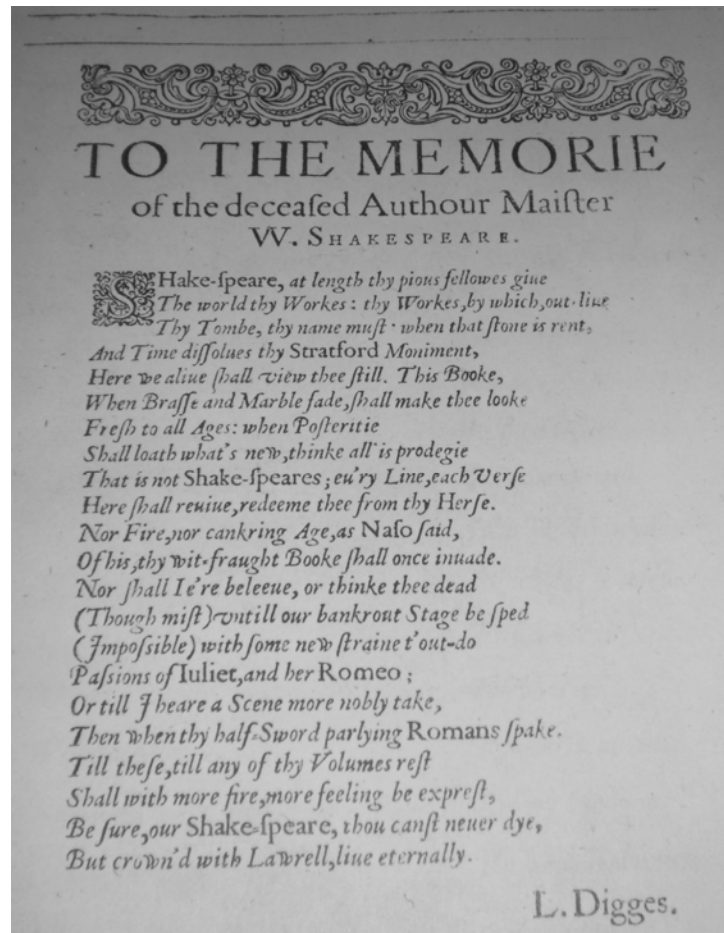 TO THE MEMORIE
of the deceaſed Authour Maiſter
VV. SHAKESPEARE.
SHake-ſpeare, at length thy pious fellowes giue
The world thy Workes: thy Workes, by which, out-liue
Thy Tombe, thy name muſt · when that ſtone is rent,
And Time diſſolues thy Stratford Moniment,
Here we aliue ſhall view thee ſtill. This Booke,
When Braſſe and Marble fade, ſhall make thee looke
Freſh to all Ages: when Poſteritie
Shall loath what's new, thinke all is prodegie
That is not Shake-ſpeares; eu'ry Line, each Verſe
Here ſhall reuiue, redeeme thee from thy Herſe.
Nor Fire, nor cankring Age, as Naſo ſaid,
Of his, thy wit-fraught Booke ſhall once inuade.
Nor ſhall I e're beleeue, or thinke thee dead
(Though miſt) vntill our bankrout Stage be ſped
(Impoſsible) with ſome new ſtraine t'out-do
Paſsions of Iuliet, and her Romeo;
Or till I heare a Scene more nobly take,
Then when thy half-Sword parlying Romans ſpake.
Till theſe, till any of thy Volumes reſt
Shall with more fire, more feeling be expreſt,
Be ſure, our Shake-ſpeare, thou canſt neuer dye,
But crown'd with Lawrell, liue eternally.
L. Digges.